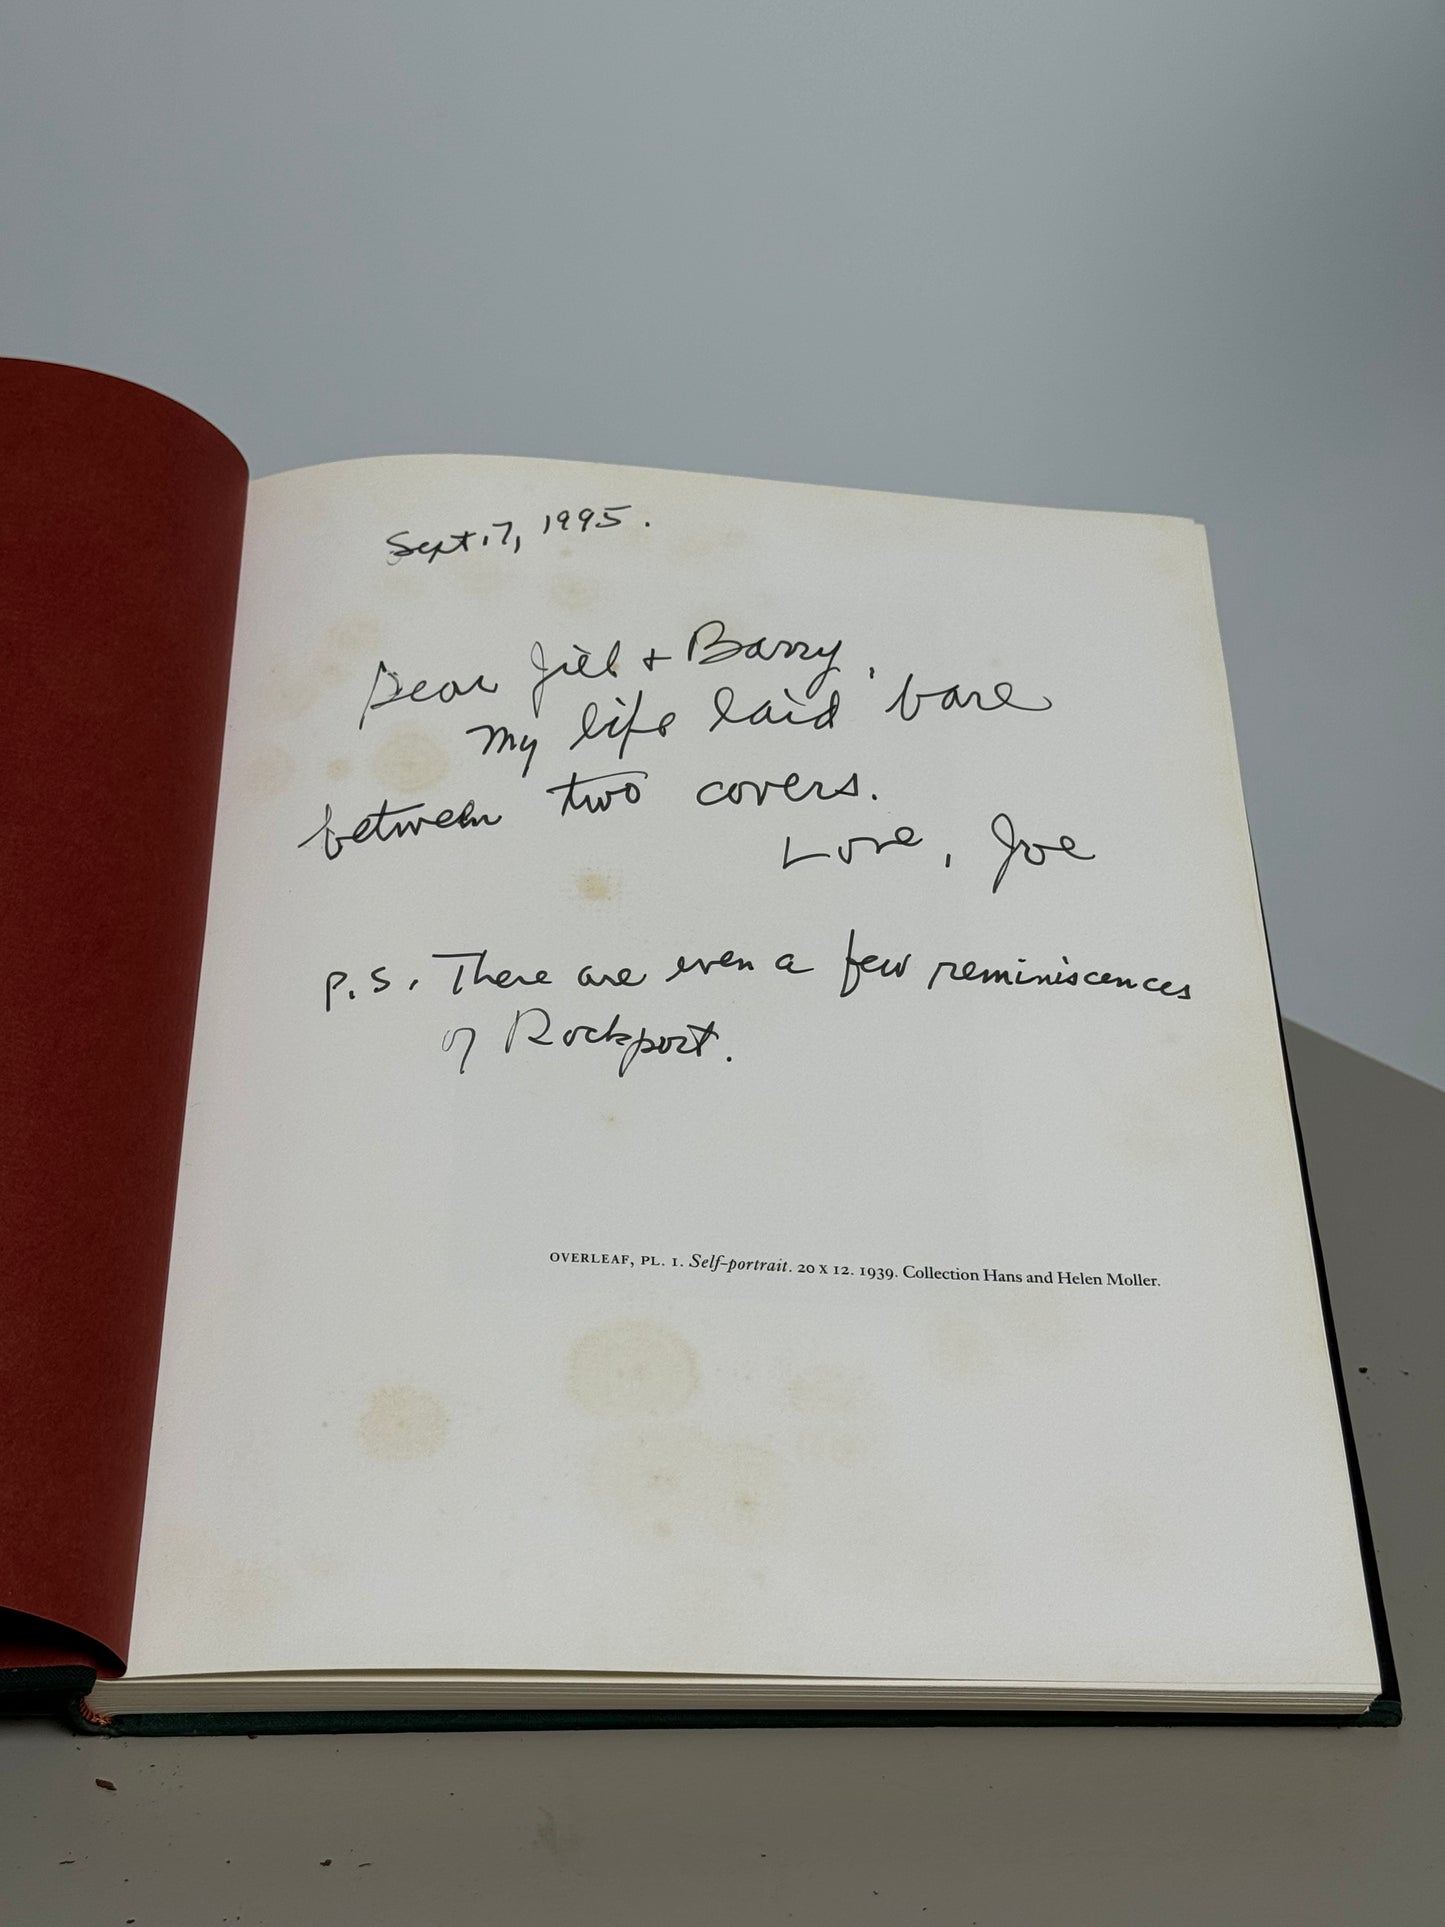 Sept. 7, 1995.
Dear Jill + Barry,
my life laid bare
between two covers.
Love, Joe
P.S. There are even a few reminiscences
of Rockport.
OVERLEAF, PL. 1. Self-portrait. 20 X 12. 1939. Collection Hans and Helen Moller.